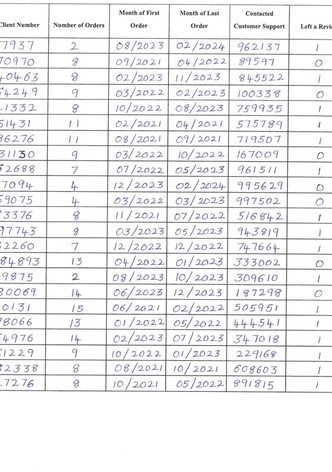 Client Number Number of Orders Month of First Order Month of Last Order Contacted Customer Support Left a Revie
7937 2 08/2023 02/2024 962137 1
70970 8 09/2021 04/2022 89597 0
40463 8 02/2023 11/2023 845522 1
4249 9 03/2022 02/2023 100338 0
1332 8 10/2022 08/2023 759935 1
51431 11 02/2021 04/2021 575789 1
86276 11 08/2021 09/2021 719507 1
31130 9 03/2022 10/2022 167009 0
2688 7 07/2022 05/2023 961511 1
7094 4 12/2023 02/2024 995629 0
59075 4 03/2022 03/2023 997502 0
3376 8 11/2021 07/2022 516842 1
97743 8 03/2023 05/2023 943819 1
2260 7 12/2022 12/2022 747664 1
84893 13 04/2022 01/2023 333002 0
9875 2 08/2023 10/2023 309610 1
30069 14 06/2023 12/2023 187298 0
0131 15 06/2021 02/2022 505951 1
78066 13 01/2022 05/2022 444541 1
4976 14 02/2023 07/2023 347018 1
1229 9 10/2022 01/2023 229168 1
2338 8 08/2021 10/2021 608603 1
7276 8 10/2021 05/2022 891815 1